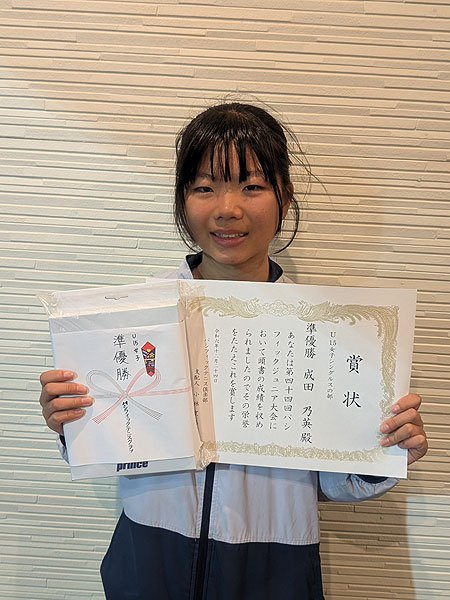 賞状
U15女子シングルスの部
準優勝 成田 乃英殿
あなたは第四十四回パシ
フィックジュニア大会に
おいて頭書の成績を収め
られましたのでその栄誉
をたたえこれを賞します
パシフィックテニス倶楽部
支配人 小林
U15女子
準優勝
パシフィックテニスクラブ
prince